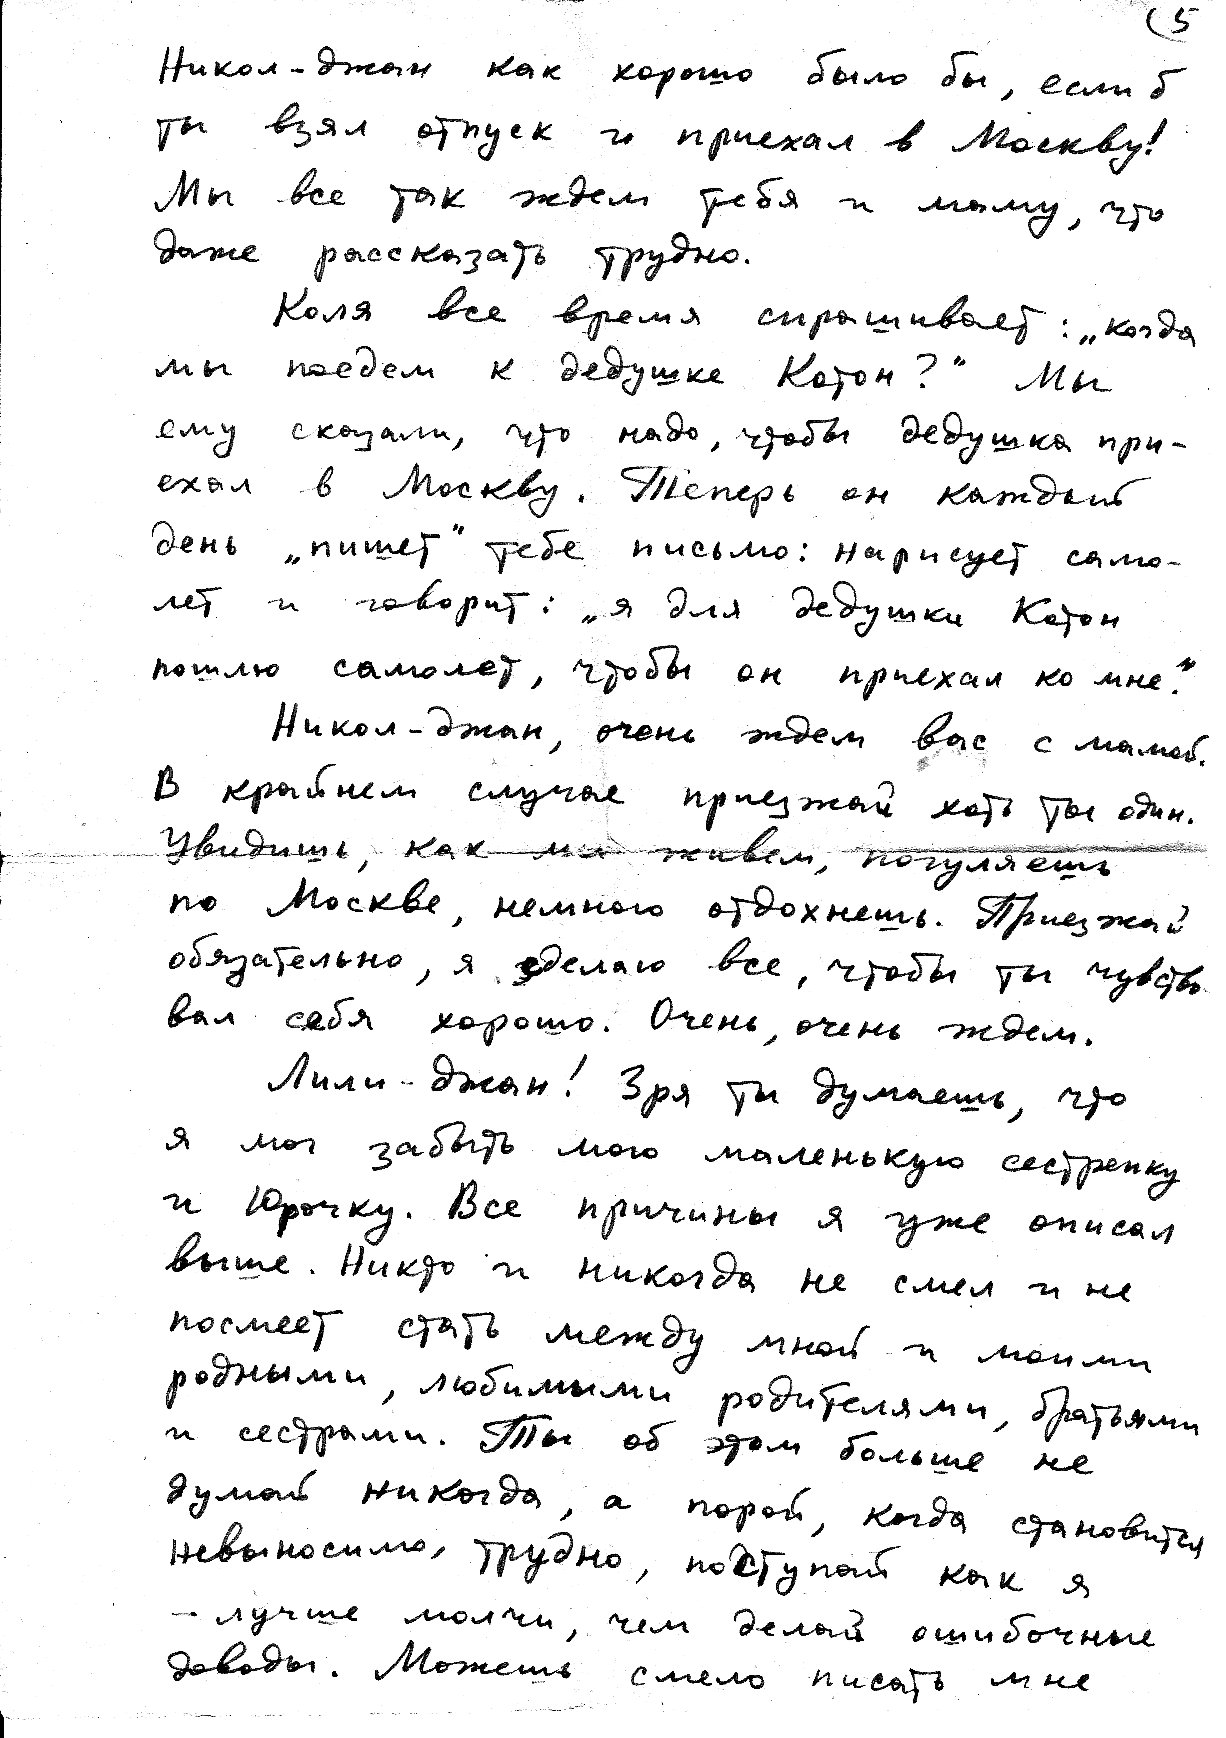 (5
Никол-джан как хорошо было бы, если б
ты взял отпуск и приехал в Москву!
Мы все так ждем тебя и маму, что
даже рассказать трудно.
Коля все время спрашивает: „когда
мы поедем к дедушке Котон?" Мы
ему сказали, что надо, чтобы дедушка при-
ехал в Москву. Теперь он каждый
день „пишет" тебе письмо: нарисует само-
лет и говорит: „я для дедушки Котон
пошлю самолет, чтобы он приехал ко мне."
Никол-джан, очень ждем вас с мамой.
В крайнем случае приезжай хоть ты один.
Увидишь, как мы живем, погуляешь
по Москве, немного отдохнешь. Приезжай
обязательно, я сделаю все, чтобы ты чувство
вал себя хорошо. Очень, очень ждем.
Лили-джан! Зря ты думаешь, что
я мог забыть мою маленькую сестренку
и Юрочку. Все причины я уже описал
выше. Никто и никогда не смел и не
посмеет стать между мной и моими
родными, любимыми родителями, братьями
и сестрами. Ты об этом больше не
думай никогда, а порой, когда становится
невыносимо, трудно, поступай как я
- лучше молчи, чем делай ошибочные
доводы. Можешь смело писать мне